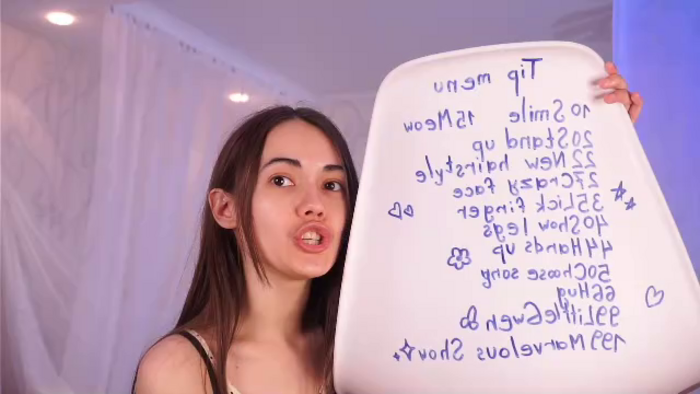 Tip menu
10 Smile 15 Meow
20 Stand up
22 New hairstyle
27 Crazy face
35 Lick finger
40 Show legs
44 Hands up
50 Choose song
66 Hug
99 Little Gwen
199 Marvelous Show